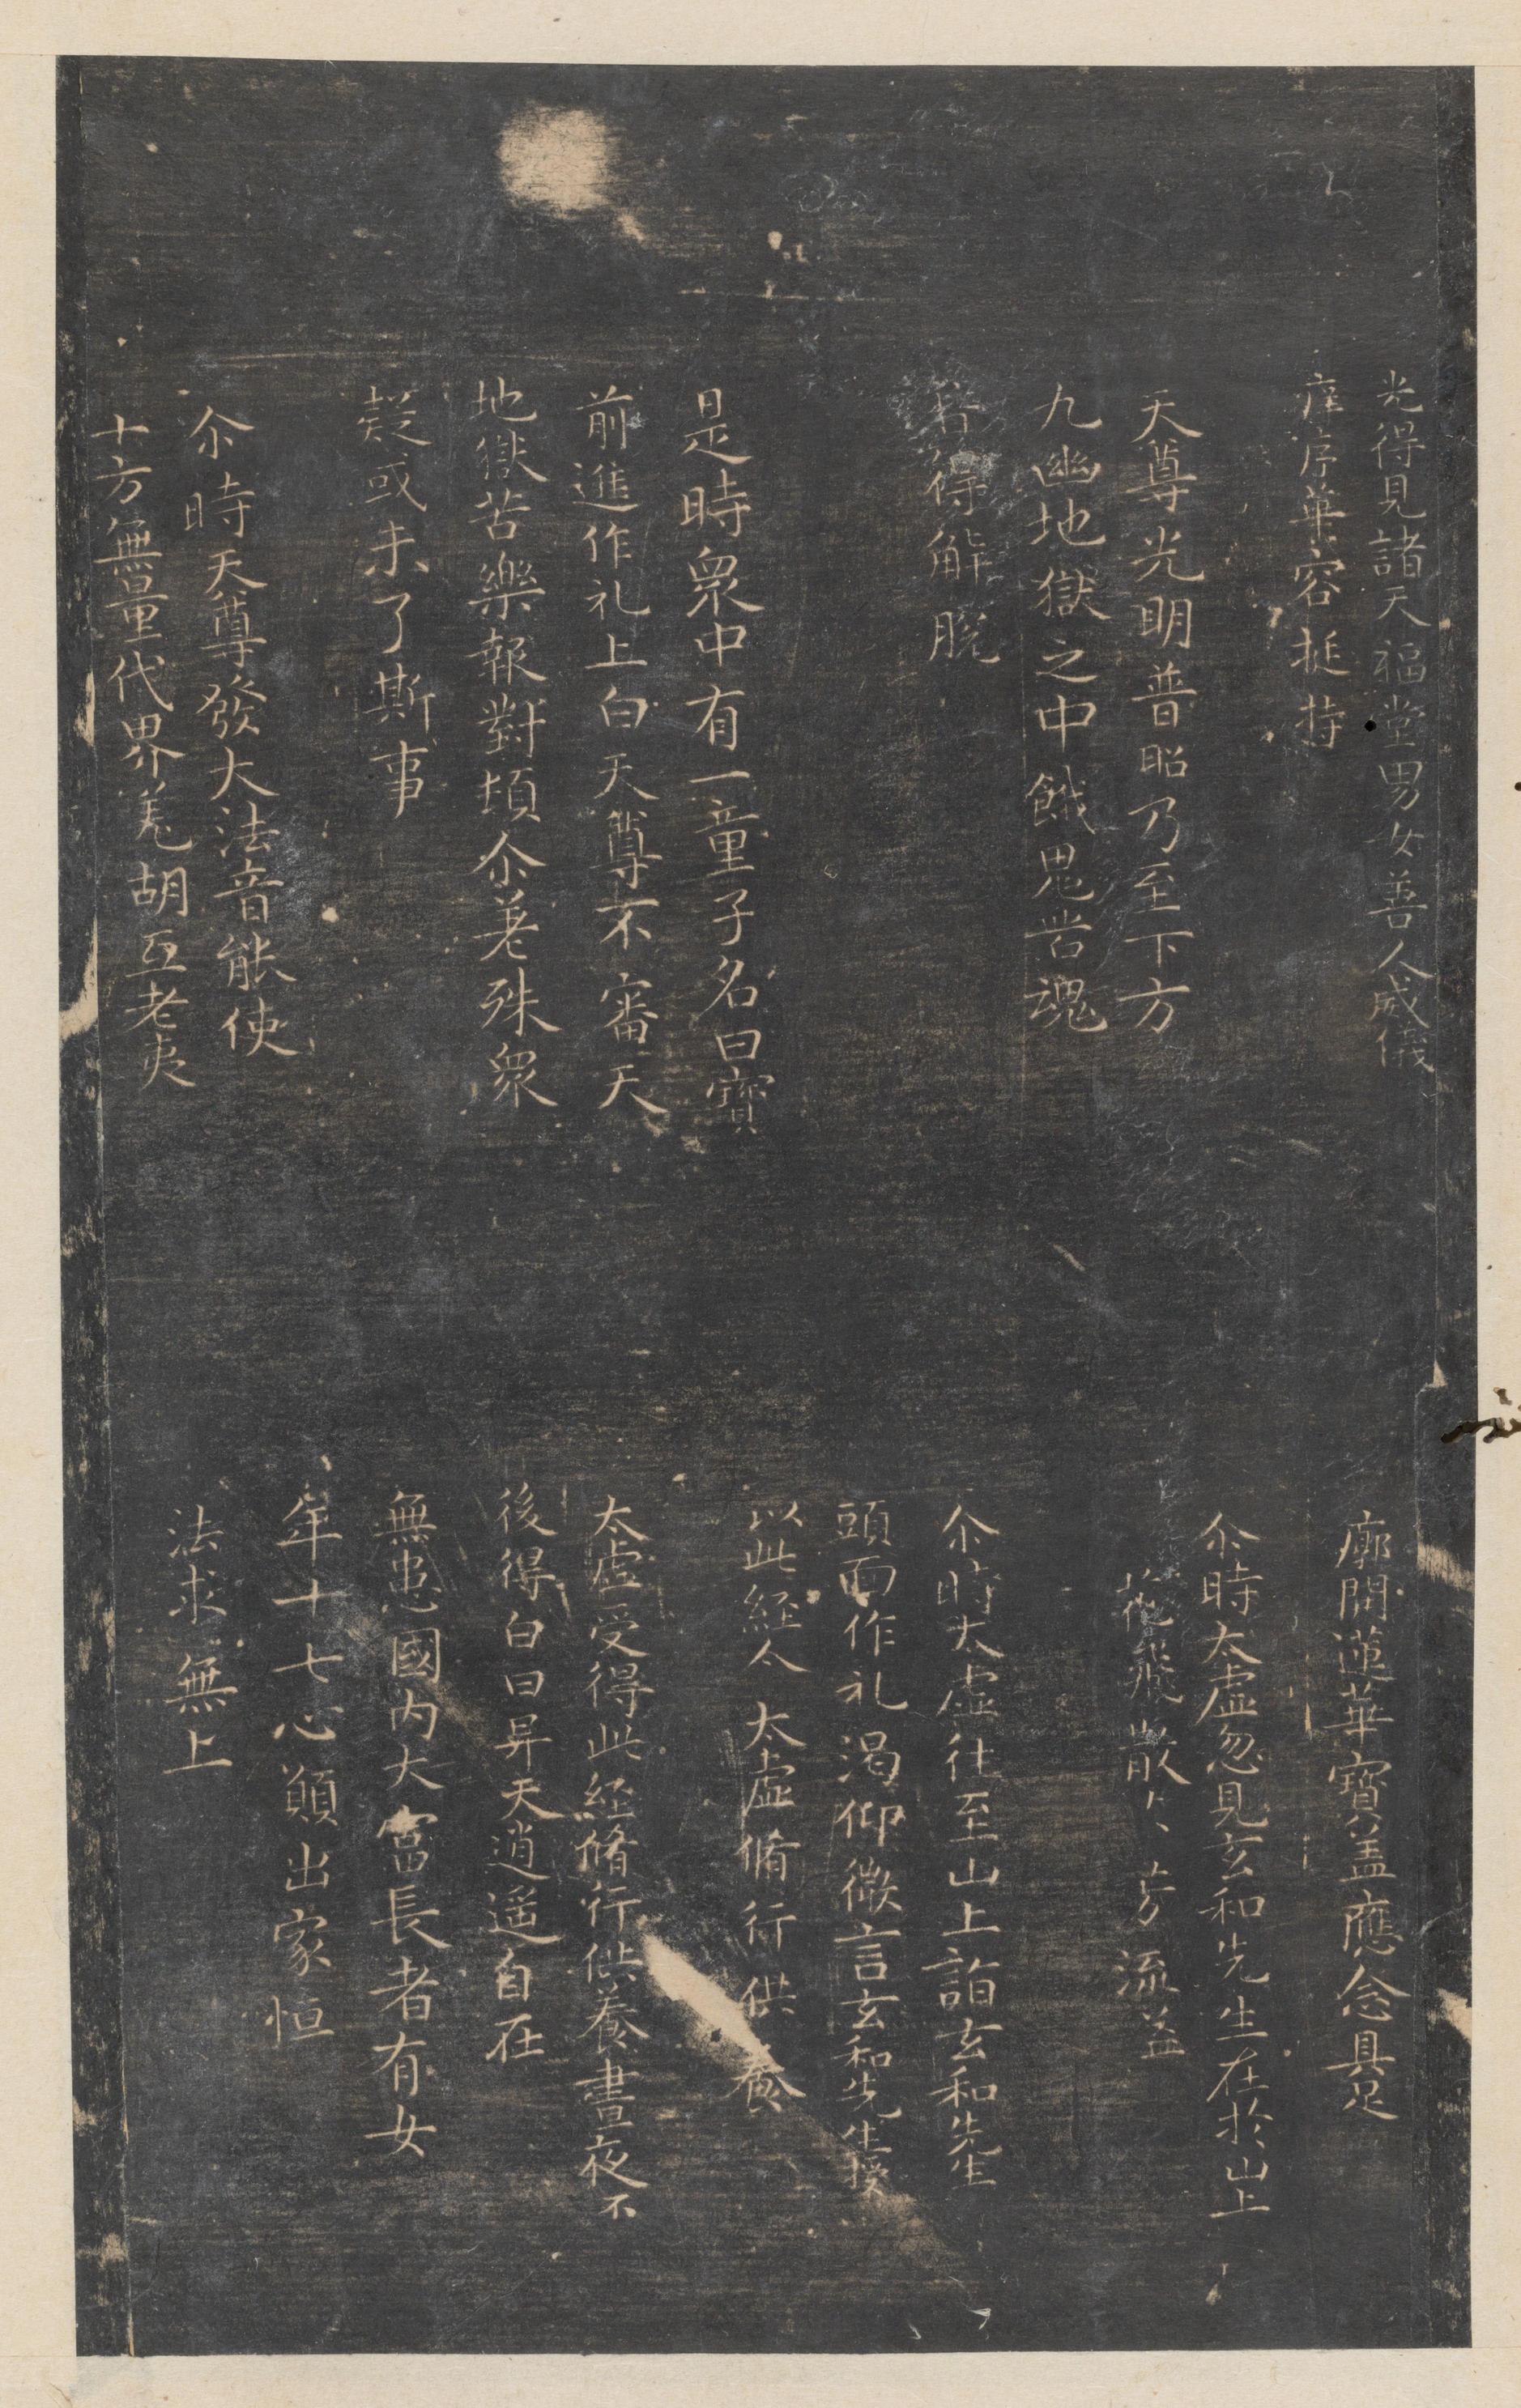 光得見諸天福堂男女善人威儀
庠序華容挺特
天尊光明普照乃至下方
九幽地獄之中餓鬼苦魂
皆得解脫
是時衆中有一童子名曰寶
前進作礼上白天尊不審天
地獄苦樂報對煩尒差殊衆
疑或未了斯事
尒時天尊發大法音能使
十方無量代界羌胡互老夷
廓開蓮華寶盖應念具足
尒時太虛忽見玄和先生在於山上
花飛散〻芳流盖
尒時太虛往至山上詣玄和先生
頭面作礼渴仰微言玄和先生授
以此經令太虛脩行供養
太虛受得此經脩行供養晝夜不
後得白日昇天逍遥自在
無恚國內大富長者有女
年十七心願出家恒
法求無上